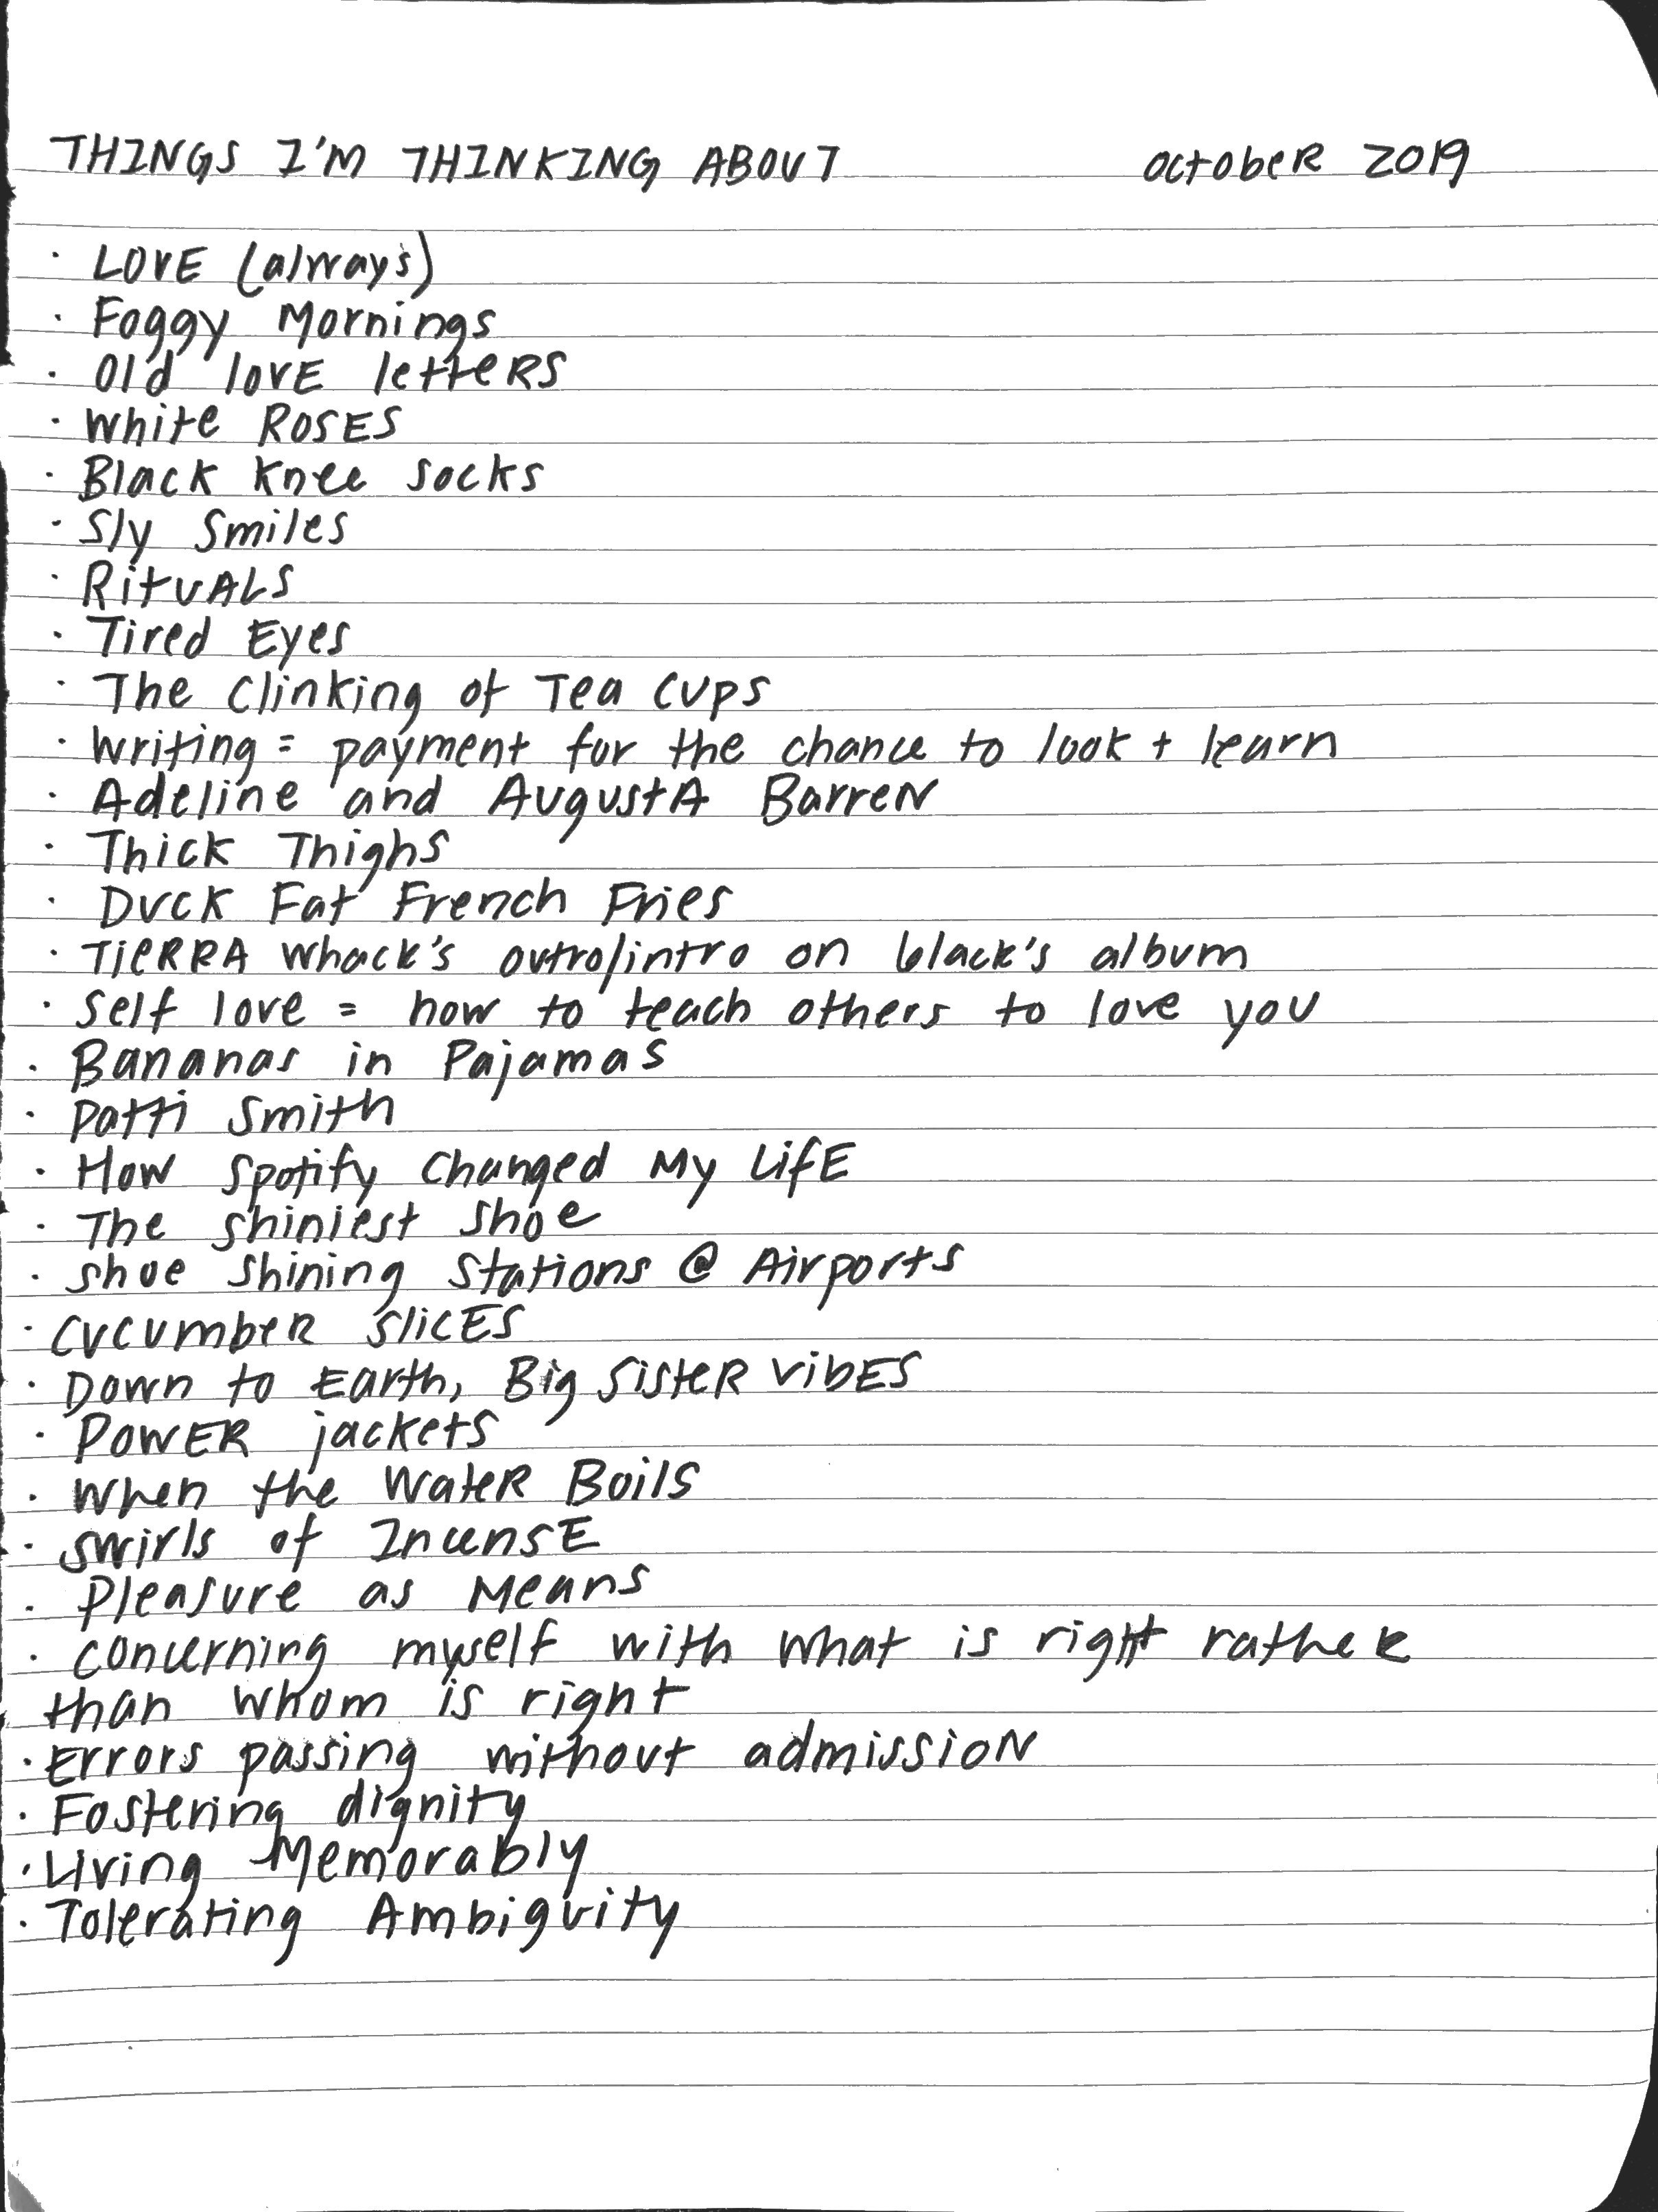 THINGS I'M THINKING ABOUT October 2019
· LOVE (always)
· Foggy Mornings
· Old lovE letteRS
· White ROSES
· Black Knee Socks
· Sly Smiles
· RituALS
· Tired Eyes
· The Clinking of Tea Cups
· Writing = payment for the chance to look + learn
· Adeline and AugustA BarreN
· Thick Thighs
· Duck Fat French Fries
· TieRRA Whack's outro/intro on 6lack's album
· Self love = how to teach others to love you
· Bananas in Pajamas
· Patti Smith
· How Spotify Changed My LifE
· The Shiniest Shoe
· Shoe Shining Stations @ Airports
· CucumbeR SlicES
· Down to Earth, Big SisteR VibES
· POWER jackets
· When the WateR Boils
· Swirls of IncensE
· Pleasure as Means
· Concerning myself with what is right ratheR
than whom is right
· Errors passing without admissioN
· Fostering dignity
· Living Memorably
· Tolerating Ambiguity